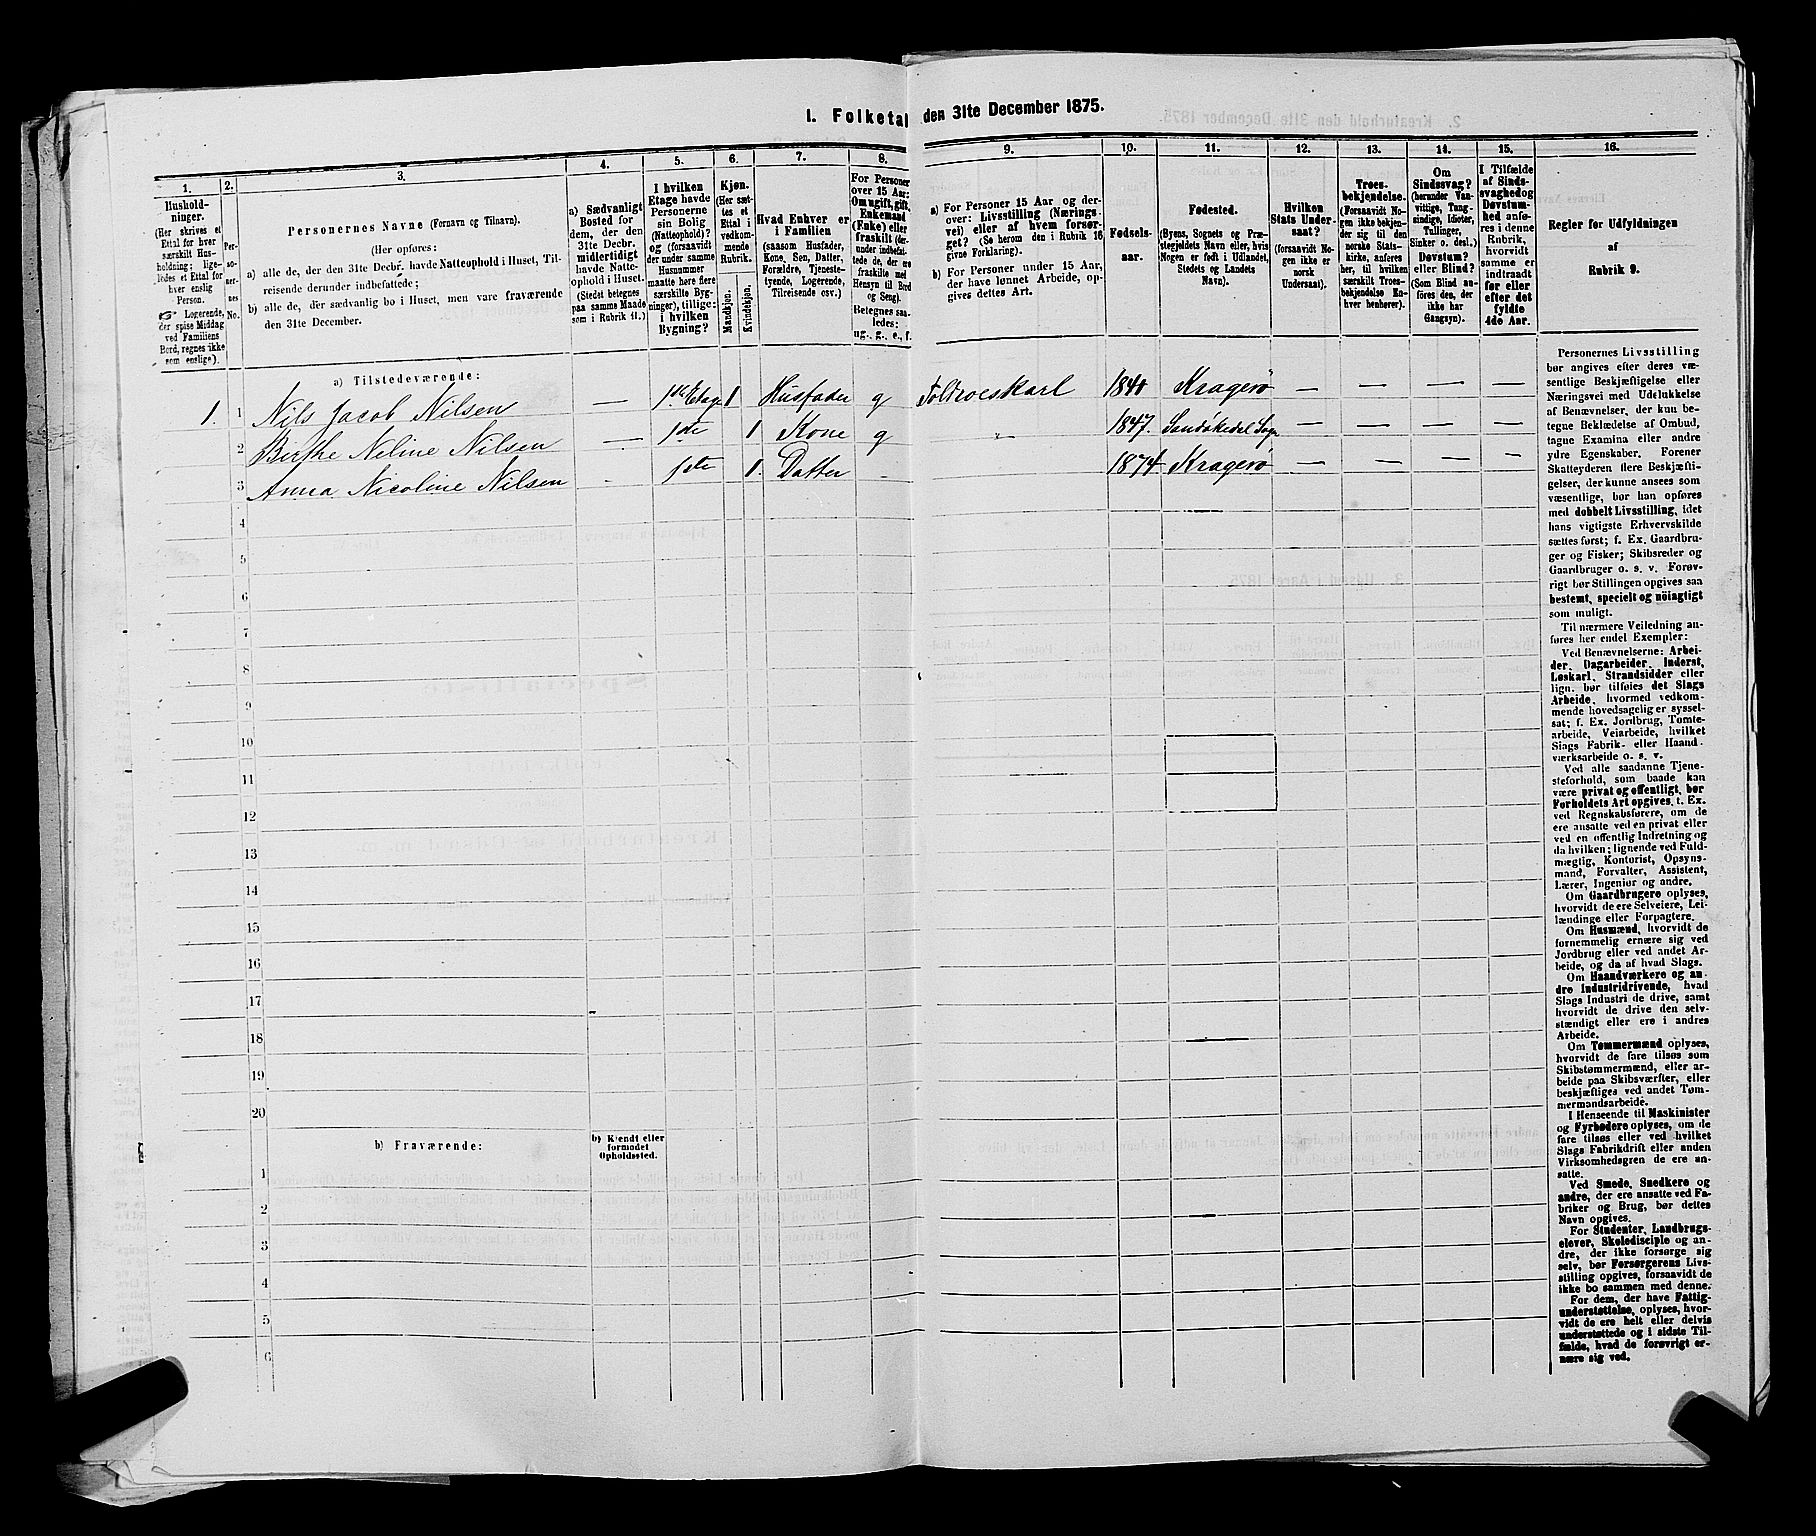 1. Folketal den 31te December 1875.
1. 2. 3. 4. 5. 6. 7. 8. 9. 10. 11. 12. 13. 14. 15. 16.
Hushold-
ninger.
(Her skrives et
Ettal for hver
særskilt Hus-
holdning; lige-
ledes et Ettal for
hver enslig
Person.
Logerende,
der spise Middag
ved Familiens
Bord, regnes ikke
som enslige).
Per-
so-
ner-
nes
No.
Personernes Navne (Fornavn og Tilnavn).
(Her opføres:
a) alle de, der den 31te Decbr. havde Natteophold i Huset, Til-
reisende derunder indbefattede;
b) alle de, der sædvanlig bo i Huset, men vare fraværende
den 31te December.
a) Sædvanligt
Bosted for
dem, der den
31te Decbr.
midlertidigt
havde Natte-
ophold i Huset.
(Stedet betegnes
paa samme Maade
som i Rubrik 11.)
I hvilken
Etage havde
Personerne
sin Bolig
(Natteophold)?
og (forsaavidt
der under samme
Husnummer
maatte høre flere
særskilte Byg-
ninger), tillige:
i hvilken
Bygning?
Kjøn.
(Her sæt-
tes et
Ettal i
vedkom-
mende
Rubrik.
Mandkjøn.
Kvindekjøn.
Hvad Enhver er
i Familien
(saasom Husfader,
Kone, Søn, Datter,
Forældre, Tjeneste-
tyende, Logerende,
Tilreisende osv.)
For Personer
over 15 Aar:
Om ugift, gift,
Enkemand
(Enke) eller
fraskilt (der-
under indbefat-
tede de, der ere
fraskilte med
Hensyn til Bord
og Seng).
Betegnes saa-
ledes:
ug., g., e., f.
a) For Personer 15 Aar og der-
over: Livsstilling (Nærings-
vei) eller af hvem forsør-
get? (Se herom den i Rubrik 16
givne Forklaring).
b) For Personer under 15 Aar,
der have lønnet Arbeide, op-
gives dettes Art.
Fødsels-
aar.
Fødested.
(Byens, Sognets og Præ-
stegjeldets Navn eller, hvis
Nogen er født i Udlandet,
Stedets og Landets
Navn).
Hvilken
Stats Under-
saat?
(forsaavidt No-
gen ikke er
norsk
Undersaat).
Troes-
bekjendelse.
(Forsaavidt No-
gen ikke bekjen-
der sig til den
norske Stats-
kirke, anføres
her, til hvilken
særskilt Troes-
bekjendelse En-
hver henhører).
Om
Sindssvag?
(herunder Van-
vittige, Tung-
sindige, Idioter,
Tullinger,
Sinker o. desl.)
Døvstum?
eller Blind?
(Som Blind an-
føres den, der
ikke har
Gangsyn).
I Tilfælde
af Sinds-
svaghed og
Døvstum-
hed anfø-
res i denne
Rubrik,
hvorvidt
samme er
indtraadt
før eller
efter det
fyldte
4de Aar.
Regler for Udfyldningen
af
Rubrik 9.
a) Tilstedeværende:
1. 1 Nils Jacob Nilsen — 1ste Etage 1 Husfader g Toldroeskarl 1840 Kragerø — — — —
2 Birthe Neline Nilsen — 1ste 1 Kone g " 1847. Sandøkedel Sogn — — — —
3 Anna Nicoline Nilsen - 1ste 1. Datter - 1874 Kragerø — — — —
4
5
6
7
8
9
10
11
12
13
14
15
16
17
18
19
20
b) Fraværende:
b) Kjendt eller
formodet
Opholdssted.
1
2
3
4
5
6
Personernes Livsstilling
bør angives efter deres væ-
sentlige Beskjæftigelse eller
Næringsvei med Udelukkelse
af Benævnelser, der kun be-
tegne Beklædelse af Ombud,
tagne Examina eller andre
ydre Egenskaber. Forener
Skatteyderen flere Beskjæfti-
gelser, der kunne ansees som
væsentlige, bør han opføres
med dobbelt Livsstilling, idet
hans vigtigste Erhvervskilde
sættes først; f. Ex. Gaardbru-
ger og Fisker; Skibsreder og
Gaardbruger o. s. v. Forøv-
rigt bør Stillingen opgives saa
bestemt, specielt og nöiagtigt
som muligt.
Til nærmere Veiledning an-
føres her endel Exempler:
Ved Benævnelserne: Arbei-
der, Dagarbeider, Inderst,
Løskarl, Strandsidder eller
lign. bør tilføies det Slags
Arbeide, hvormed vedkom-
mende hovedsagelig er syssel-
sat; f. Ex. Jordbrug, Tomte-
arbeide, Veiarbeide, hvilket
Slags Fabrik- eller Haand-
værksarbeide o. s. v.
Ved alle saadanne Tjene-
steforhold, som baade kan
være privat og offentligt, bør
Forholdets Art opgives, t. Ex.
ved Regnskabsførere, om de
ere ansatte ved en privat eller
ved en offentlig Indretning og
da hvilken; lignende ved Fuld-
mægtig, Kontorist, Opsyns-
mand, Forvalter, Assistent,
Lærer, Ingeniør og andre.
Om Gaardbrugere oplyses,
hvorvidt de ere Selveiere, Lei-
lændinge eller Forpagtere.
Om Husmænd, hvorvidt de
fornemmelig ernære sig ved
Jordbrug eller ved andet Ar-
beide, og da af hvad Slags.
Om Haandværkere og an-
dre Industridrivende, hvad
Slags Industri de drive, samt
hvorvidt de drive den selv-
stændigt eller ere i andres
Arbeide.
Om Tømmermænd oplyses,
hvorvidt de fare tilsøs som
Skibstømmermænd, eller ar-
beide paa Skibsværfter, eller
beskjæftiges ved andet Tøm-
mermandsarbeide.
I Henseende til Maskinister
og Fyrbødere oplyses, om de
fare tilsøs eller ved hvilket
Slags Fabrikdrift eller anden
Virksomhedsgren de ere an-
satte.
Ved Smede, Snedkere og
andre, der ere ansatte ved Fa-
briker og Brug, bør dettes
Navn opgives.
For Studenter, Landbrugs-
elever, Skoledisciple og an-
dre, der ikke forsørge sig
selv, bør Forsørgerens Livs-
stilling opgives, forsaavidt de
ikke bo sammen med denne.
For dem, der have Fattig-
understøttelse, oplyses, hvor-
vidt de ere helt eller delvis
understøttede og i sidste Til-
fælde, hvad de forøvrigt er-
nære sig ved.